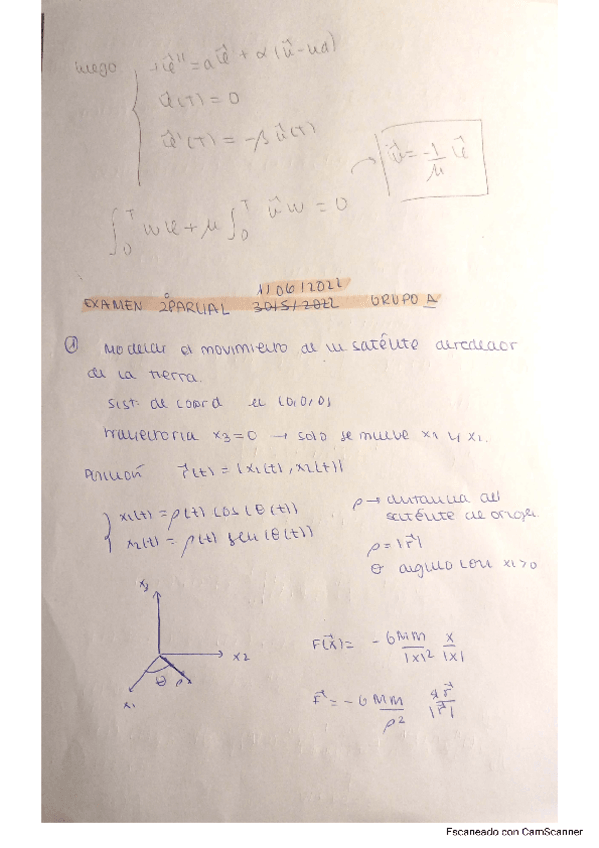 luego
+φ⃗'' = aφ⃗ + α(u⃗-ud)
φ⃗(T) = 0
φ⃗'(T) = -β u⃗(T)
u⃗ = -1/μ φ⃗
∫₀ᵀ wφ + μ ∫₀ᵀ u⃗w = 0
1/06/2022
EXAMEN 2ºPARCIAL 30/5/2022 GRUPO A
① Modelar el movimiento de un satélite alrededor
de la tierra.
sist. de coord el (0,0,0)
trayectoria x3=0 → solo se mueve x1 y x2.
Posición r⃗(t) = (x1(t), x2(t))
x1(t) = ρ(t) cos(θ(t))
x2(t) = ρ(t) sen(θ(t))
ρ → distancia del
satélite de origen
ρ = |r⃗|
θ angulo con x1>0
x3
x2
x1
θ
ρ
F(x⃗) = -GMm/|x|² x/|x|
F⃗ = -GMm/ρ² r⃗/|r⃗|
Escaneado con CamScanner